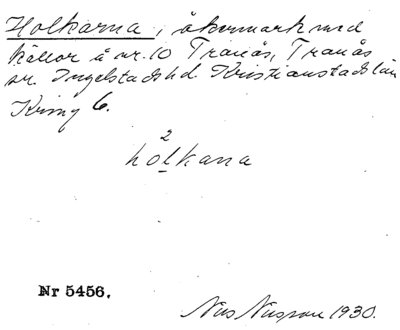 Holkarna, i åkermark med
källor å nr. 10 Tranås, Tranås
sn. Ingelstads hd Kristianstads län
Kring 6.
2
hòlkana
Nr 5456.
Nils Nilsson 1930.